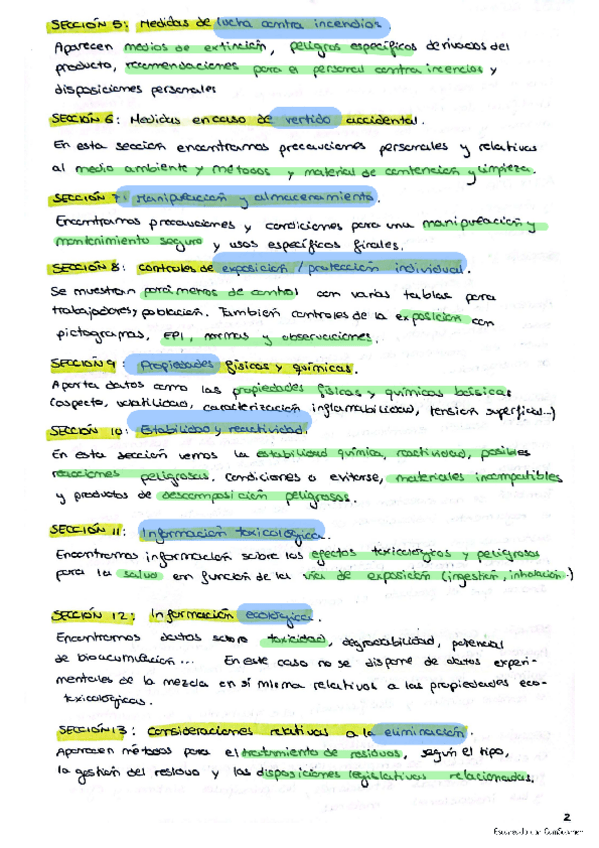 SECCIÓN 5: Medidas de lucha contra incendios
Aparecen medios de extinción, peligros específicos derivados del
producto, recomendaciones para el personal contra incencios y
disposiciones personales
SECCIÓN 6: Medidas en caso de vertido accidental.
En esta sección encontramos precauciones personales y relativas
al medio ambiente y métodos y material de contención y limpieza.
SECCIÓN 7: Manipulación y almacenamiento.
Encontramos precauciones y condiciones para una manipulación y
mantenimiento seguro y usos específicos finales.
SECCIÓN 8: controles de exposición / protección individual.
Se muestran parámetros de control con varias tablas para
trabajadores y población. También controles de la exposición con
pictogramas, EPI, normas y observaciones.
SECCIÓN 9: Propiedades físicas y químicas.
Aporta datos como las propiedades físicas y químicas básicas
(aspecto, volatilidad, caracterización inflamabilidad, tensión superficial...)
SECCIÓN 10: Estabilidad y reactividad.
En esta sección vemos la estabilidad química, reactividad, posibles
reacciones peligrosas, condiciones a evitarse, materiales incompatibles
y productos de descomposición peligrosos.
SECCIÓN 11: Información toxicológica.
Encontramos información sobre los efectos toxicológicos y peligrosos
para la salud en función de la vía de exposición (ingestión, inhalación..)
SECCIÓN 12: Información ecológica.
Encontramos datos sobre toxicidad, degradabilidad, potencial
de bioacumulación... En este caso no se dispone de datos experi-
mentales de la mezcla en sí misma relativos a las propiedades eco-
toxicológicas.
SECCIÓN 13: consideraciones relativas a la eliminación.
Aparecen métodos para el tratamiento de residuos, según el tipo,
la gestión del residuo y las disposiciones legislativas relacionadas.
2
Escaneado con CamScanner